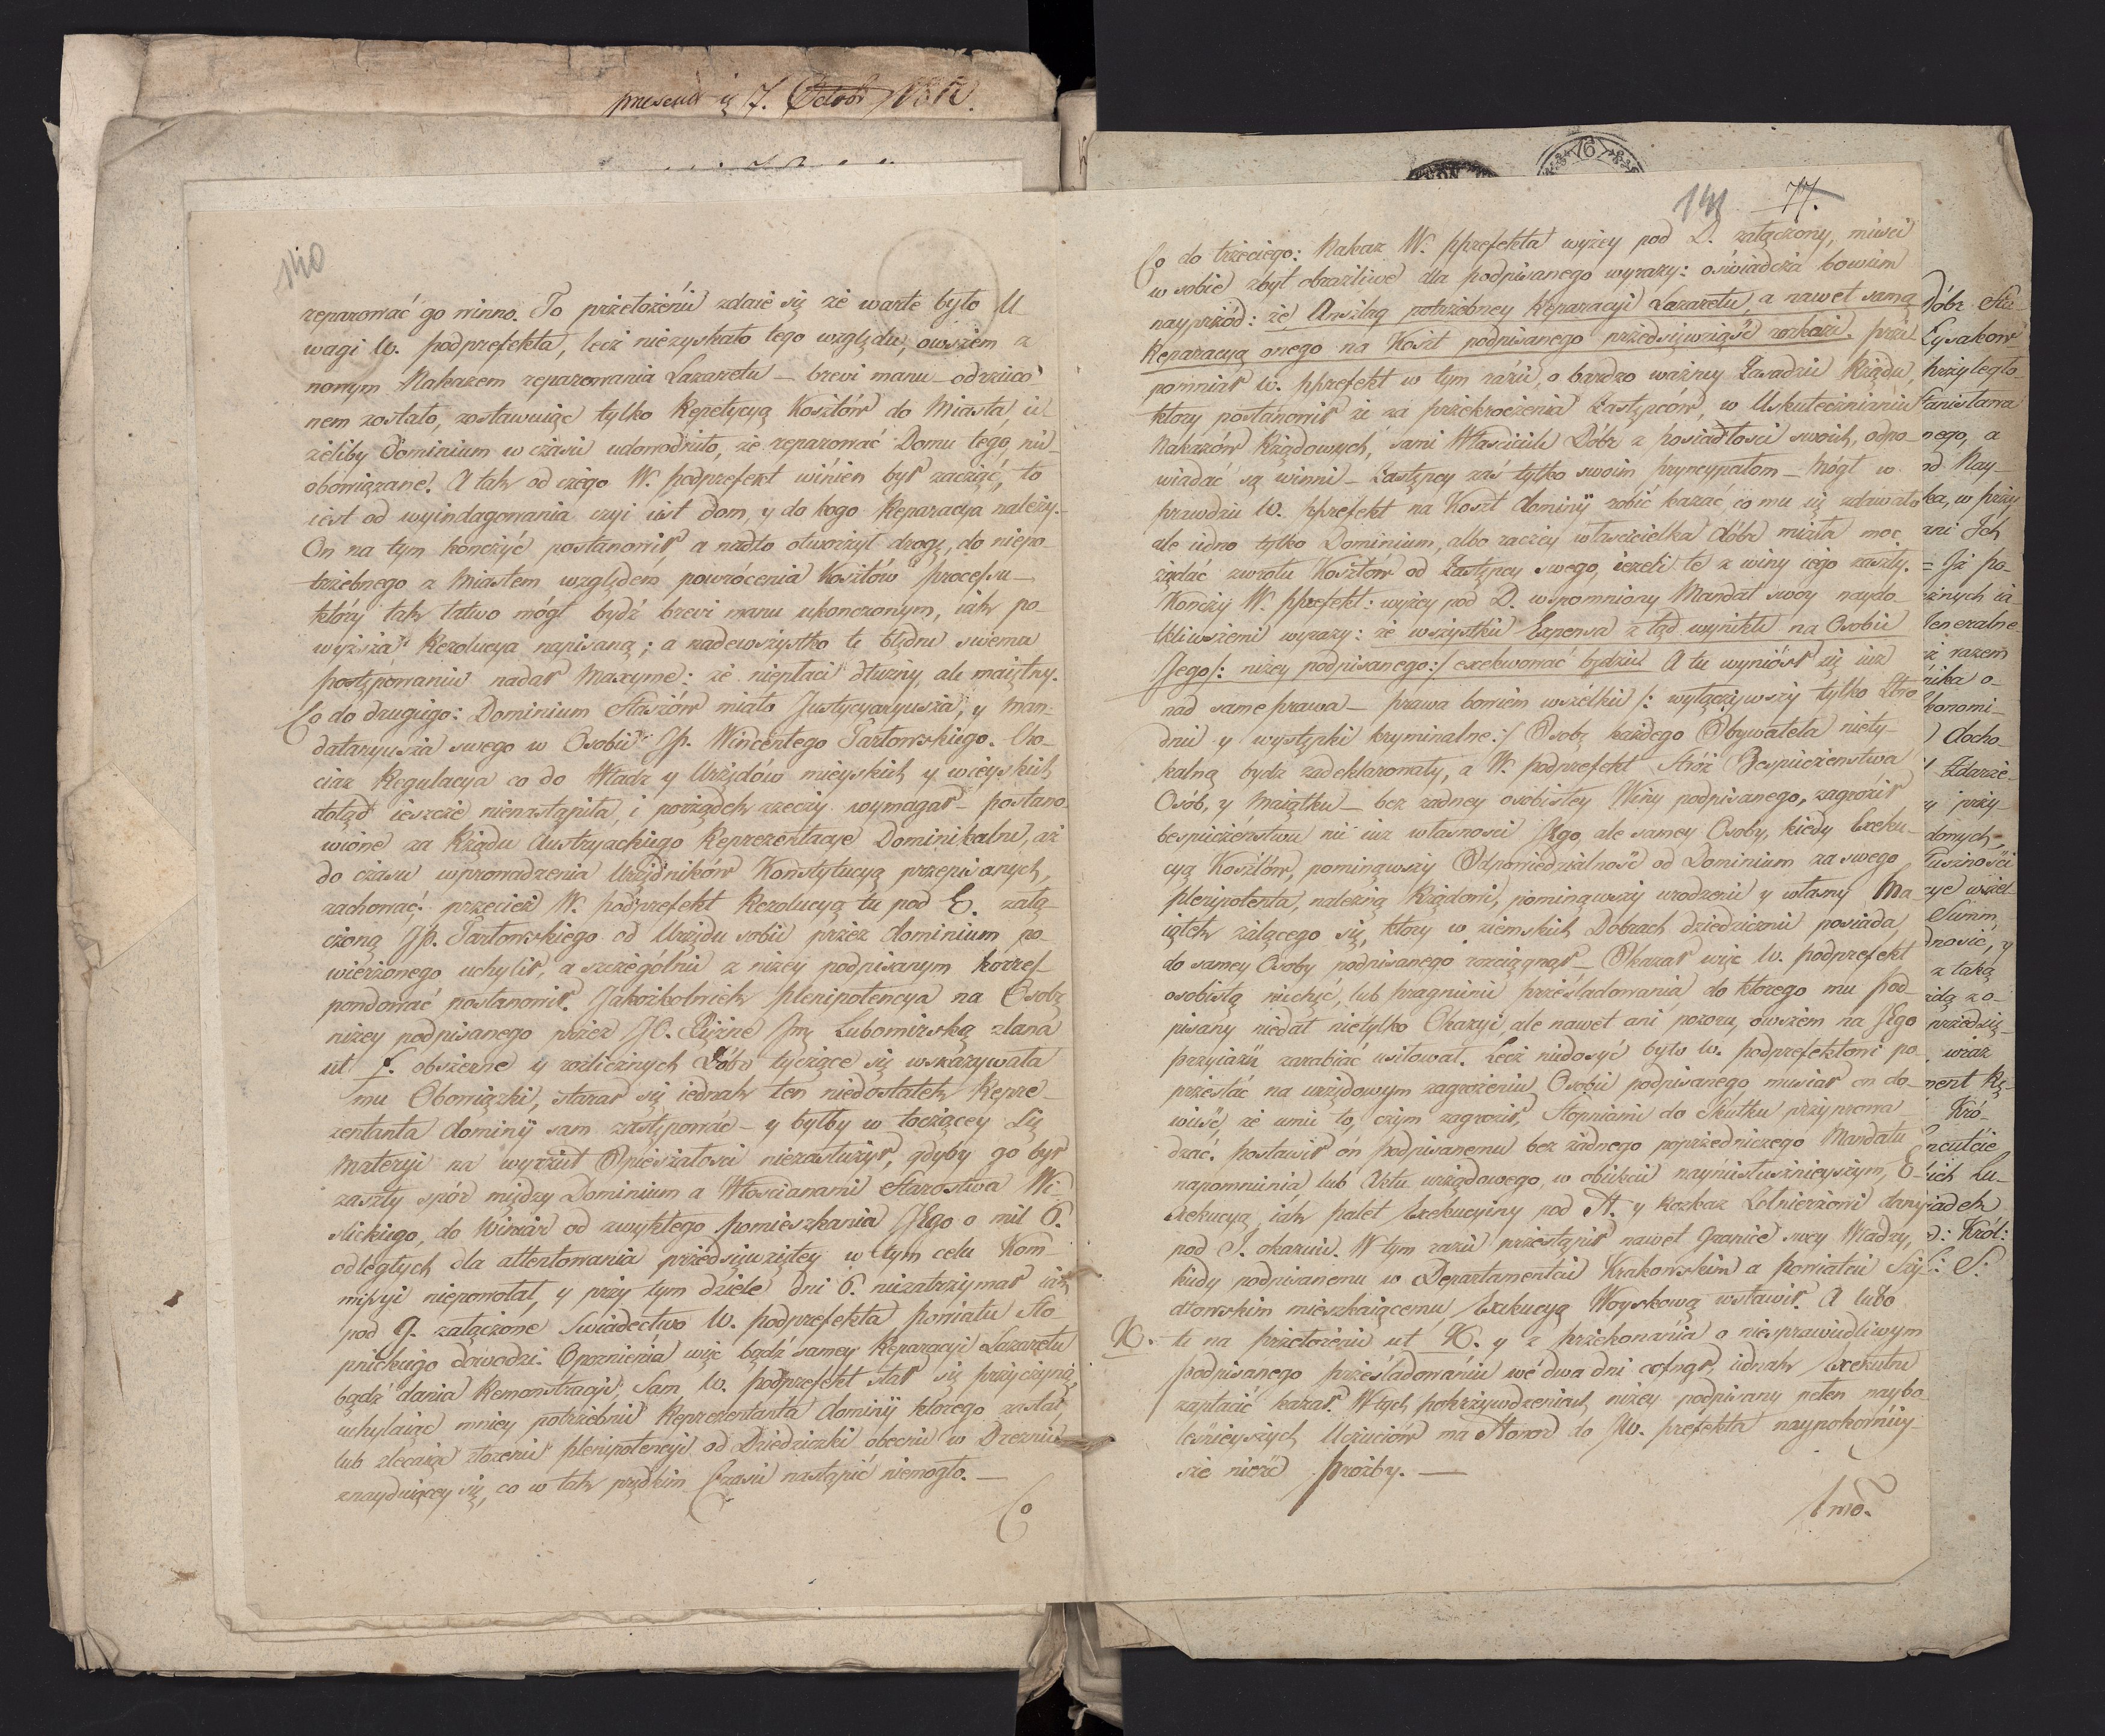 140
reparować go winno. To przełożeniu zdaie się że warte było U
wagi W. podprefekta, lecz niezyskało tego względu, owszem z
nowym Nakazem reparowania Lazaretu – brevi manu – odrzuco
nem zostało, zostawuiąc tylko Repetycyą Kosztów do Miasta, ie
żeliby Dominium w czasie udowodniło, że reparować Domu tego, nie
obowiązane. A tak od czego W. podprefekt winien był zacząć, to
iest od wyindagowania czyi iest dom, y do kogo Reparacya należy.
On na tym kończyć postanowił, a nadto otworzył drogę, do niepo-
trzebnego z Miastem względem powrócenia Kosztów processu –
który tak łatwo mógł bydź brevi manu ukonczonym, iak po-
wyższa Rezolucya napisaną; a nadewszystko te błędne swema
postępowaniu nadał Maxymę: że niepłaci dłużny, ale maiętny.
Co do drugiego: Dominium Staszów miało Justycyaryusza, y Man-
dataryusza swego w Osobie Jp. Wincentego Tartowskiego. Cho-
ciaż Regulacya co do Władz y Urzędów mieyskich y wieyskich
dotąd ieszcze nienastąpiła, i porządek rzeczy wymagał – postano
wione za Rządu Austryackiego Reprezentacye Dominikalne, aż
do czasu wprowadzenia Urzędników Konstytucyą przepisanych,
zachować; przecież W. podprefekt Rezolucyą tu pod E. załą-
czoną Jp. Tartowskiego od Urzędu sobie przez dominium po-
wierzonego uchylił, a szczególnie z niżey podpisanym korres-
pondować postanowił. Jakożkolwiek plenipotencya na Osobę
niżey podpisanego przez JO. Xiężnę Jmę Lubomirską zlana
ut F. obszerne y rozlicznych Dóbr tyczące się wskazywała
mu Obowiązki, starał się iednak ten niedostatek Repre-
zentanta dominij sam zastępować – y byłby w toczącey się
Materyi na wyrzut Opieszałości niezasłużył, gdyby go był
zaszły spór między Dominium a Włoscianami Starostwa Wi-
slickiego, do Winiar od zwykłego pomieszkania Jego o mil 6.
odległych dla attentowania przedsięwziętey w tym celu Kom-
missyi niepowołał, y przy tym dziele dni 6. niezatrzymał iak
pod G. załączone Swiadectwo W. podprefekta Powiatu Sto-
pnickiego dowodzi. Opoznienia więc bądź samey Reparacyi Lazaretu
bądź dania Remonstracyi, Sam W. podprefekt stał się przyczyną,
uchylaiąc mniey potrzebnie Reprezentanta dominij którego zastał
lub zlecaiąc złożenie plenipotencyi od Dziedziczki obecnie w Dreznie
znayduiącey się, co w tak prędkim Czasie nastąpić niemogło. –
Co
141 77.
Co do trzeciego: Nakaz W. pprefekta wyżey pod D. załączony, mieści
w sobie zbyt obraźliwe dla podpisanego wyrazy: oświadcza bowiem
nayprzód: że Anszlag potrzebney Reparacyi Lazaretu, a nawet samą
Reparacyą onego na Koszt podpisanego przedsięwziąść rozkaże. prze
pomniał W. pprefekt w tym razie, o bardzo ważney Zasadzie Rządu,
który postanowił że za przekroczenia Zastępców, w Uskutecznianiu
Nakazów Rządowych, sami Właściciele Dóbr z posiadłosci swoich, odpo-
wiadać są winni – Zastępcy zaś tylko swoim pryncypałom – Mógł w
prawdzie W. pprefekt na Koszt dominij robić kazać, co mu się zdawało
ale iedno tylko Dominium, albo raczey właścicielka dóbr miała moc
żądać zwrotu Kosztów od Zastępcy swego, ieżeli te z winy iego zaszły. –
Kończy W. pprefekt: wyżey pod D. wspomniony Mandat swoy naydo-
tkliwszemi wyrazy: że wszystkie Expensa z tąd wynikłe na Osobie
Jego /: niżey podpisanego :/ exekwować będzie. A tu wyniósł się iuż
nad same prawa – prawa bowiem wszelkie /: wyłączywszy tylko Zbro
dnie y występki kryminalne :/ Osobę każdego Obywatela niety-
kalną bydz zadeklarowały, a W. podprefekt Stróż Bespieczenstwa
Osób, y Maiątku – bez żadney osobistey Winy podpisanego, zagroził
bespieczeństwu nie iuż własnosci Jego, ale samey Osoby, kiedy Exeku-
cyą Kosztów, pominąwszy Odpowiedzialność od Dominium za swego
plenipotenta, należną Rządowi, pominąwszy urodzenie y własny Ma
iątek żalącego się, który w ziemskich Dobrach dziedzicznie posiada,
do samey Osoby podpisanego rozciągnął – Okazał więc W. podprefekt
osobistą niechęć, lub pragnienie prześladowania do którego mu pod-
pisany niedał nietylko Okazyi, ale nawet ani pozoru, owszem na Jego
przyiaźń zarabiać usiłował. Lecz niedosyć było W. podprefektowi po-
przestać na urzędowym zagrożeniu, Osobie podpisanego musiał on do-
wieść, że umie to, czym zagroził, Stopniami do Skutku przyprowa-
dzać. postawił on podpisanemu bez żadnego poprzedniczego Mandatu
napomnienia lub Aktu urzędowego, w obiekcie nayniesłusznieyszym, E-
xekucyą, iak palet Exekucyiny pod H. y Rozkaz Żołnierzowi dany
pod J. okazuie. W tym razie przestąpił nawet Granice swey Władzy,
kiedy podpisanemu w Departamencie Krakowskim a Powiatcie Szy-
dłowskim mieszkaiącemu, Exekucyą Woyskową wstawił. A lubo
K. te na przełożenie ut K. y z przekonania o niesprawiedliwym
podpisanego prześladowaniu we dwa dni cofnął, iednak Exekutne
zapłacić kazał. W tych pokrzywdzeniach niżey podpisany pełen naybo
leśnieyszych Uczuciów ma Honor do JW. prefekta naypokorniey-
sze nieść Prozby. –
1mo.